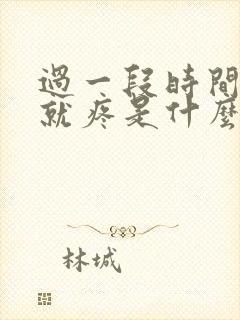 過一段時間
就疼是什麼
林城